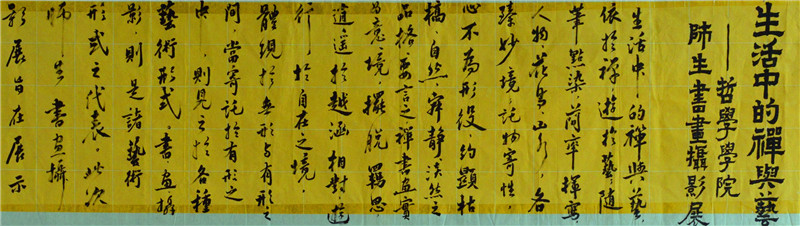 生活中的禪與藝
——哲學學院
師生書畫攝影展
生活中的禪與藝，
依於禪，遊於藝，隨
筆點染，荷率揮寫，
人物、花鳥、山水，各
臻妙境，託物寄性，
心不為形役，約顯枯
槁、自然、寂靜、淡然之
品格。要言之，禪書畫實
為意境，擺脫羈思，
逍遙於越涵相對，遊
行於自在之境，
體現於無形與有形之
間，當寄託於有形之
中，則見之於各種
藝術形式。書畫攝
影，則是諸藝術
形式之代表。此次
師生書畫攝
影展旨在展示